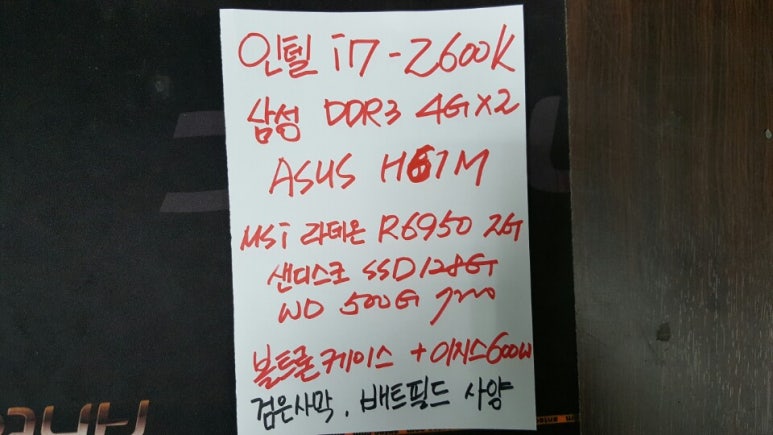 인텔 i7-2600K
삼성 DDR3 4G×2
ASUS H61M
MSi 라데온 R6950 2G
샌디스크 SSD128G
WD 500G 7200
볼트론케이스 + 이지스600W
검은사막, 배트필드 사양